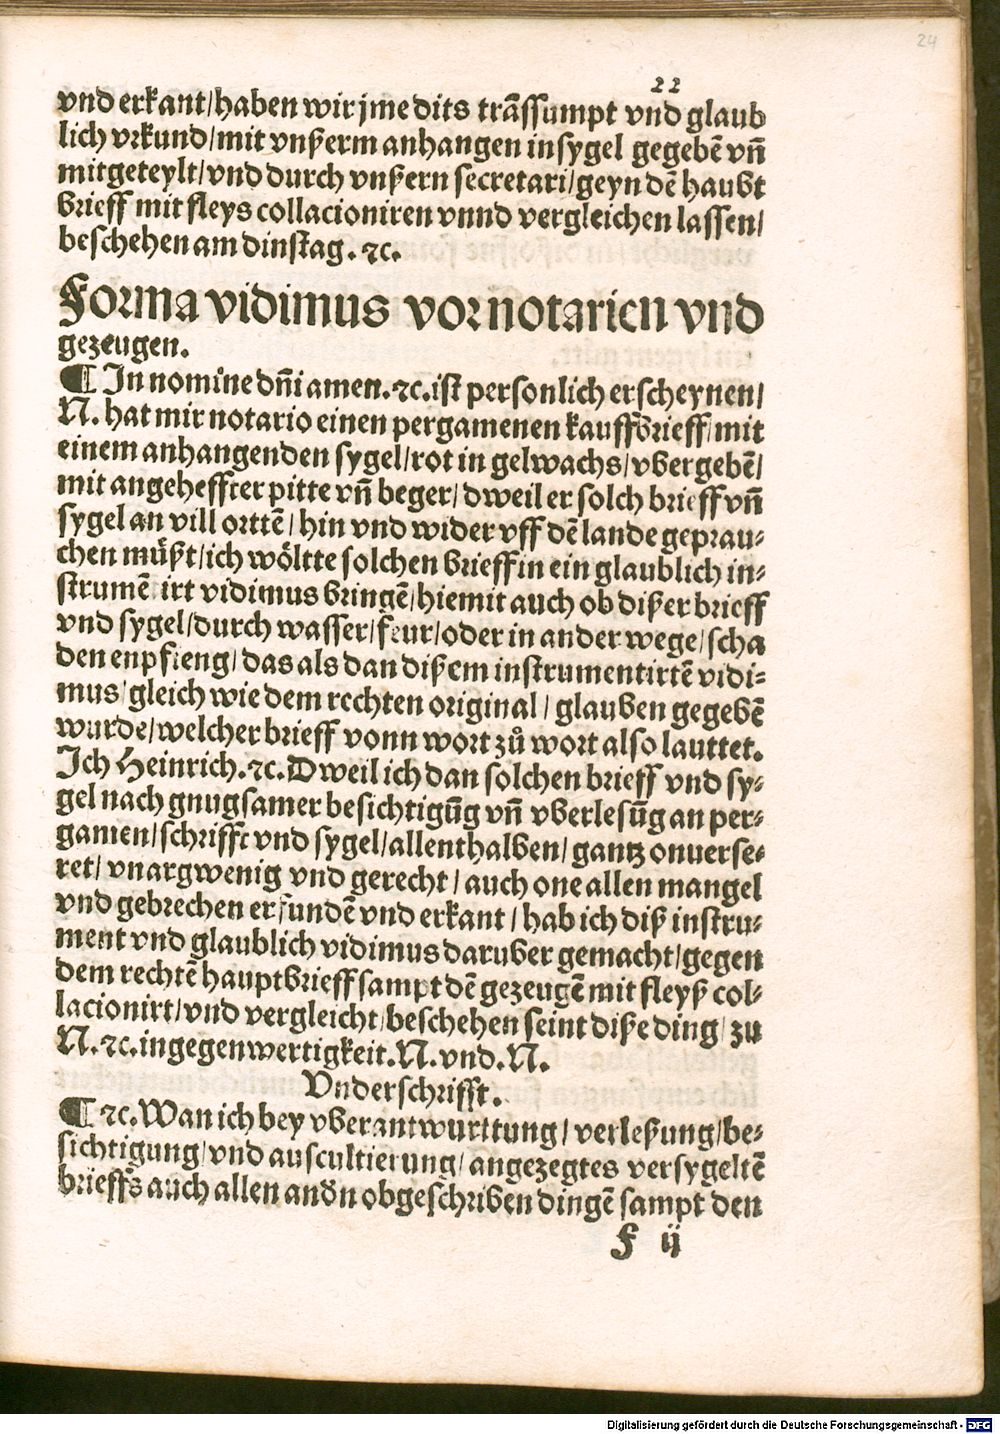 24
22
vnd erkant/haben wir jme dits trãssumpt vnd glaub
lich vrkund/mit vnßerm anhangen insygel gegebẽ vñ
mitgeteylt/vnd durch vnßern secretari/geyn dẽ haubt
brieff mit fleys collacioniren vnnd vergleichen lassen/
beschehen am dinstag. ⁊c.
Forma vidimus vor notarien vnd
gezeugen.
¶ In nomine dñi amen.⁊c.ist personlich erscheynen/
N. hat mir notario einen pergamenen kauffbrieff/mit
einem anhangenden sygel/rot in gelwachs/vbergebẽ/
mit angeheffter pitte vñ beger/dweil er solch brieff vñ
sygel an vill orttẽ/hin vnd wider vff dẽ lande geprau⸗
chen müßt/ich wöltte solchen brieff in ein glaublich in⸗
strumẽtirt vidimus bringẽ/hiemit auch ob dißer brieff
vnd sygel/durch wasser/feur/oder in ander wege/scha
den enpfieng/das als dan dißem instrumentirtẽ vidi⸗
mus/gleich wie dem rechten original/glauben gegebẽ
wurde/welcher brieff vonn wort zů wort also lauttet.
Ich Heinrich.⁊c.Dweil ich dan solchen brieff vnd sy⸗
gel nach gnugsamer besichtigũg vñ vberlesũg an per⸗
gamen/schrifft vnd sygel/allenthalben/gantz onuerse⸗
ret/vnargwenig vnd gerecht/auch one allen mangel
vnd gebrechen erfundẽ vnd erkant/hab ich diß instru⸗
ment vnd glaublich vidimus daruber gemacht/gegen
dem rechtẽ hauptbrieff sampt dẽ gezeugẽ mit fleyß col⸗
lacionirt/vnd vergleicht/beschehen seint diße ding/zu
N.⁊c.in gegenwertigkeit.N.vnd.N.
Vnderschrifft.
¶ ⁊c.Wan ich bey vberantwurttung/verleßung/be⸗
sichtigung/vnd auscultierung/angezegtes versygeltẽ
brieffs auch allen andn̄ obgeschriben dingẽ sampt den
F ij
Digitalisierung gefördert durch die Deutsche Forschungsgemeinschaft - DFG